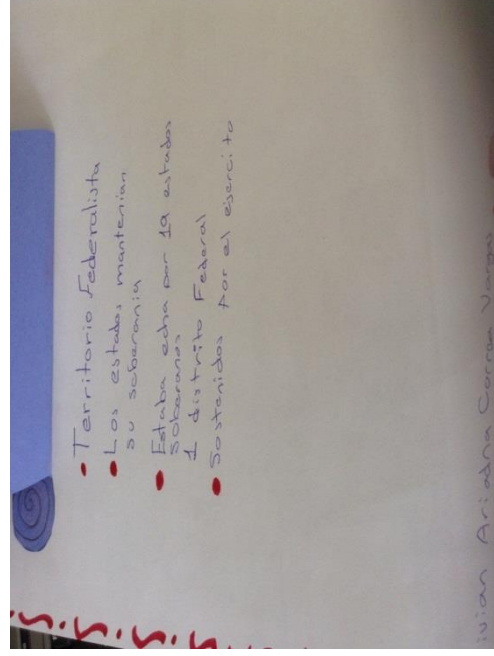 Territorio Federalista
Los estados mantenian
su soberania
Estaba echa por 19 estados
soberanos
1 distrito Federal
Sostenidos por el ejercito
ivian Ariadna Corrales Vargas